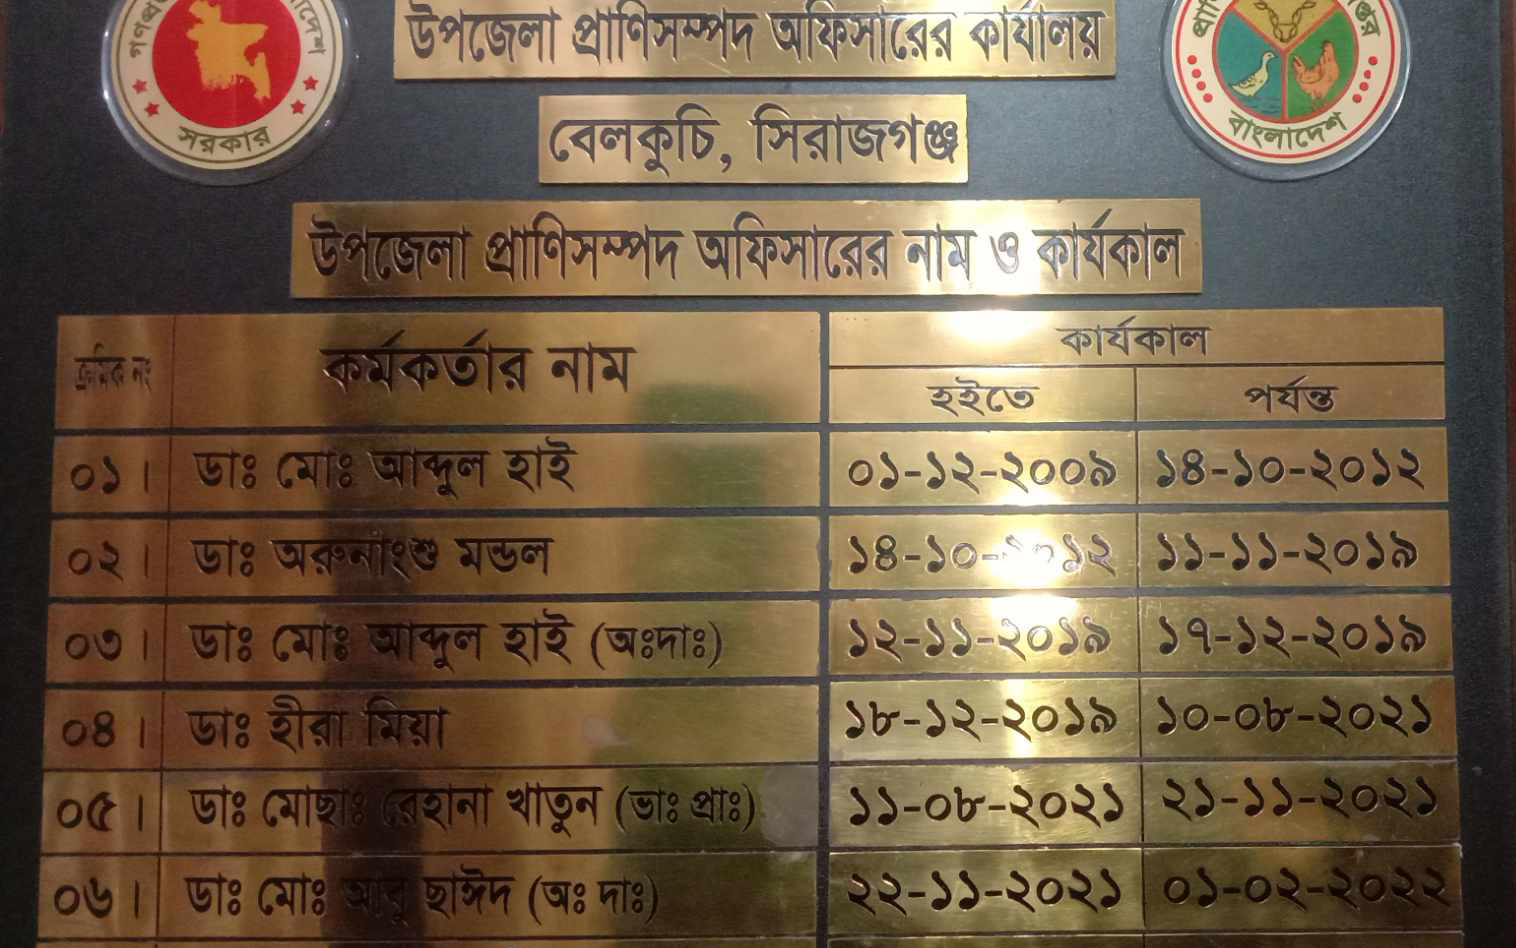 উপজেলা প্রাণিসম্পদ অফিসারের কার্যালয়
সরকার
বাংলাদেশ
বেলকুচি, সিরাজগঞ্জ
উপজেলা প্রাণিসম্পদ অফিসারের নাম ও কার্যকাল
ক্রমিক নং কর্মকর্তার নাম কার্যকাল
হইতে পর্যন্ত
০১। ডাঃ মোঃ আব্দুল হাই ০১-১২-২০০৯ ১৪-১০-২০১২
০২। ডাঃ অরুনাংশু মন্ডল ১৪-১০-২০১২ ১১-১১-২০১৯
০৩। ডাঃ মোঃ আব্দুল হাই (অঃদাঃ) ১২-১১-২০১৯ ১৭-১২-২০১৯
০৪। ডাঃ হীরা মিয়া ১৮-১২-২০১৯ ১০-০৮-২০২১
০৫। ডাঃ মোছাঃ রেহানা খাতুন (ভাঃ প্রাঃ) ১১-০৮-২০২১ ২১-১১-২০২১
০৬। ডাঃ মোঃ আবু ছাঈদ (অঃ দাঃ) ২২-১১-২০২১ ০১-০২-২০২২